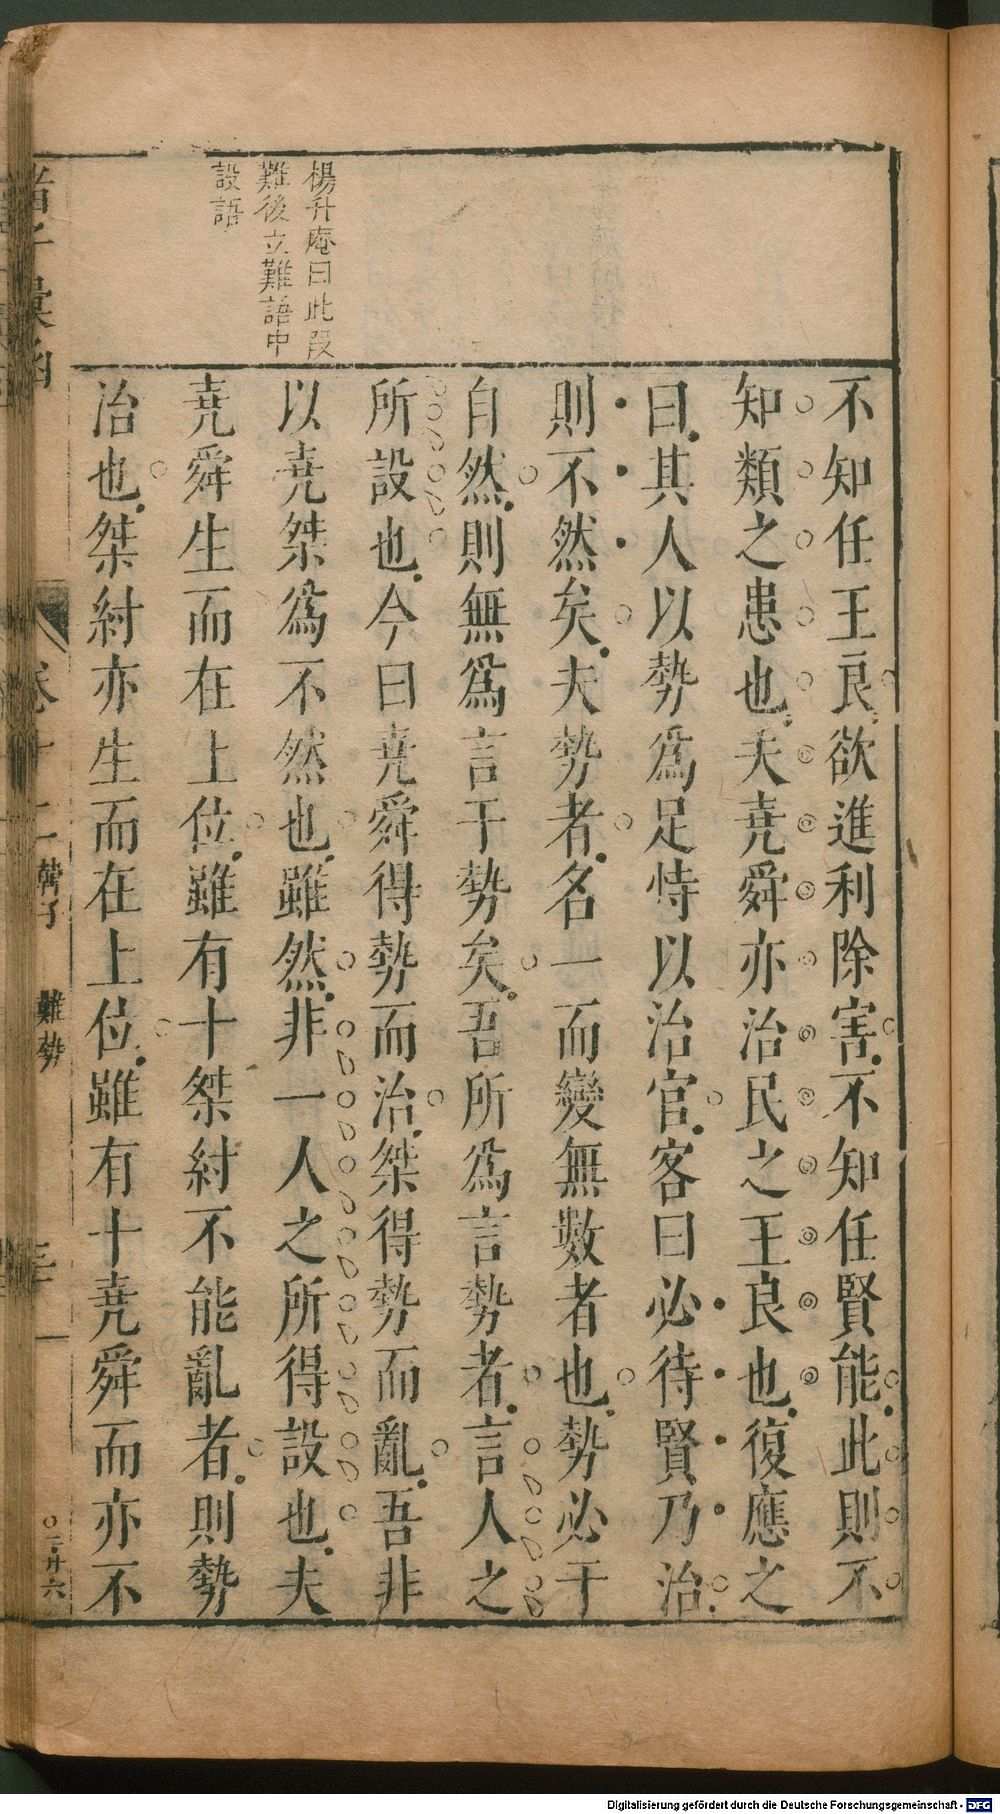 楊升庵曰此段
難後立難語中
設語
不知任王良欲進利除害不知任賢能此則不
知類之患也夫堯舜亦治民之王良也復應之
曰其人以勢爲足恃以治官客曰必待賢乃治
則不然矣夫勢者名一而變無數者也勢必于
自然則無爲言于勢矣吾所爲言勢者言人之
所設也今曰堯舜得勢而治桀得勢而亂吾非
以堯桀爲不然也雖然非一人之所得設也夫
堯舜生而在上位雖有十桀紂不能亂者則勢
治也桀紂亦生而在上位雖有十堯舜而亦不
諸子彙函 卷十二 韓子 難勢 三
〇二廾六
Digitalisierung gefördert durch die Deutsche Forschungsgemeinschaft - DFG